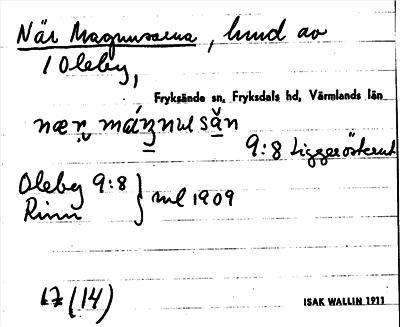 När Magnussena, lund av
1 Oleby,
Fryksände sn, Fryksdals hd, Värmlands län
nær mágnusǎn
9:8 Ligger österut
Oleby 9:8
Rinn } ml 1909
17 (14)
ISAK WALLIN 1911